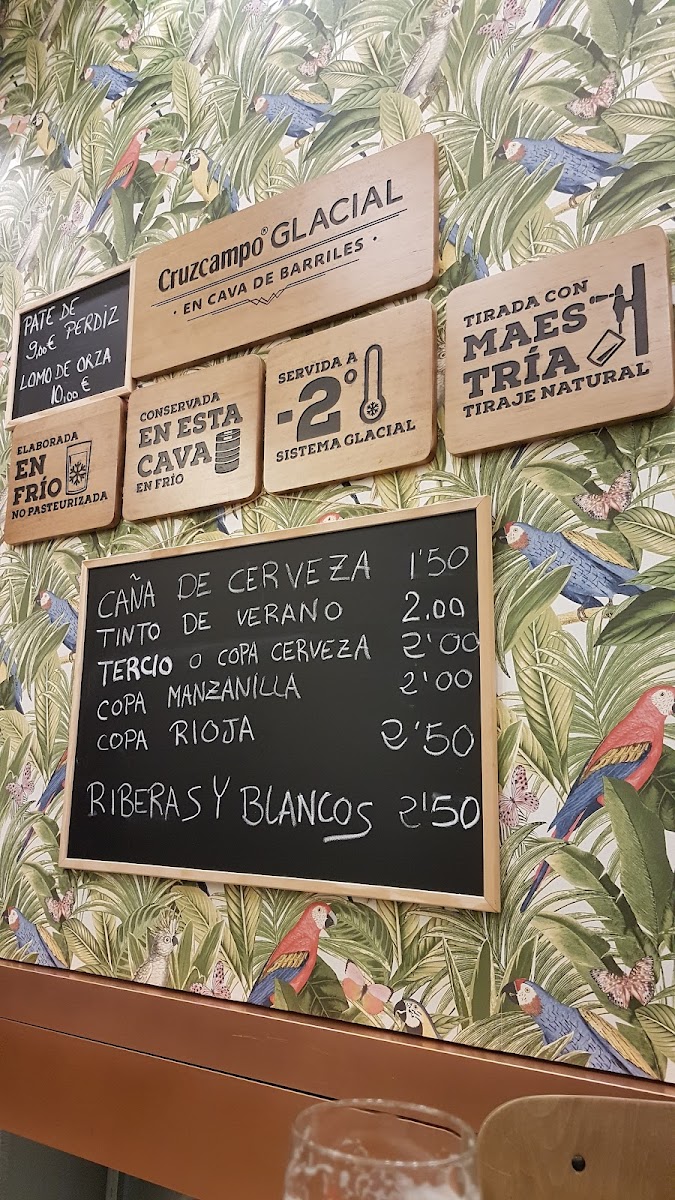 Cruzcampo® GLACIAL
· EN CAVA DE BARRILES ·
PATE DE
PERDIZ
9,00€
LOMO DE ORZA
10,00 €
TIRADA CON
MAES
TRÍA
TIRAJE NATURAL
SERVIDA A
-2°
SISTEMA GLACIAL
CONSERVADA
EN ESTA
CAVA
EN FRÍO
ELABORADA
EN
FRÍO
NO PASTEURIZADA
CAÑA DE CERVEZA 1'50
TINTO DE VERANO 2.00
TERCIO O COPA CERVEZA 2'00
COPA MANZANILLA 2'00
COPA RIOJA 2'50
RIBERAS Y BLANCOS 2'50